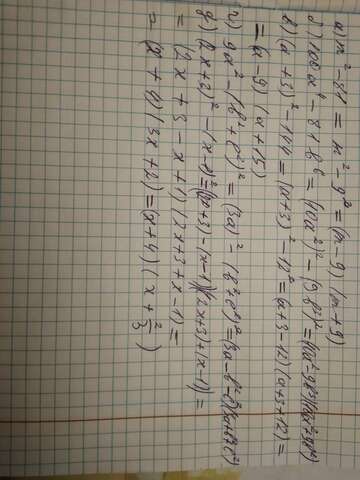 а) m² - 81 = m² - 9² = (m - 9) (m + 9)
б) 100a⁴ - 81b⁶ = (10a²)² - (9b³)² = (10a² - 9b³)(10a² + 9b³)
в) (a + 3)² - 144 = (a + 3)² - 12² = (a + 3 - 12)(a + 3 + 12) =
= (a - 9) (a + 15)
г) 9a² - (b² + c²)² = (3a)² - (b² + c²)² = (3a - b² - c²)(3a + b² + c²)
д) (2x + 3)² - (x - 1)² = ((2x + 3) - (x - 1))((2x + 3) + (x - 1)) =
= (2x + 3 - x + 1) (2x + 3 + x - 1) =
= (x + 4) (3x + 2) = (x + 4) (x + 2/3)